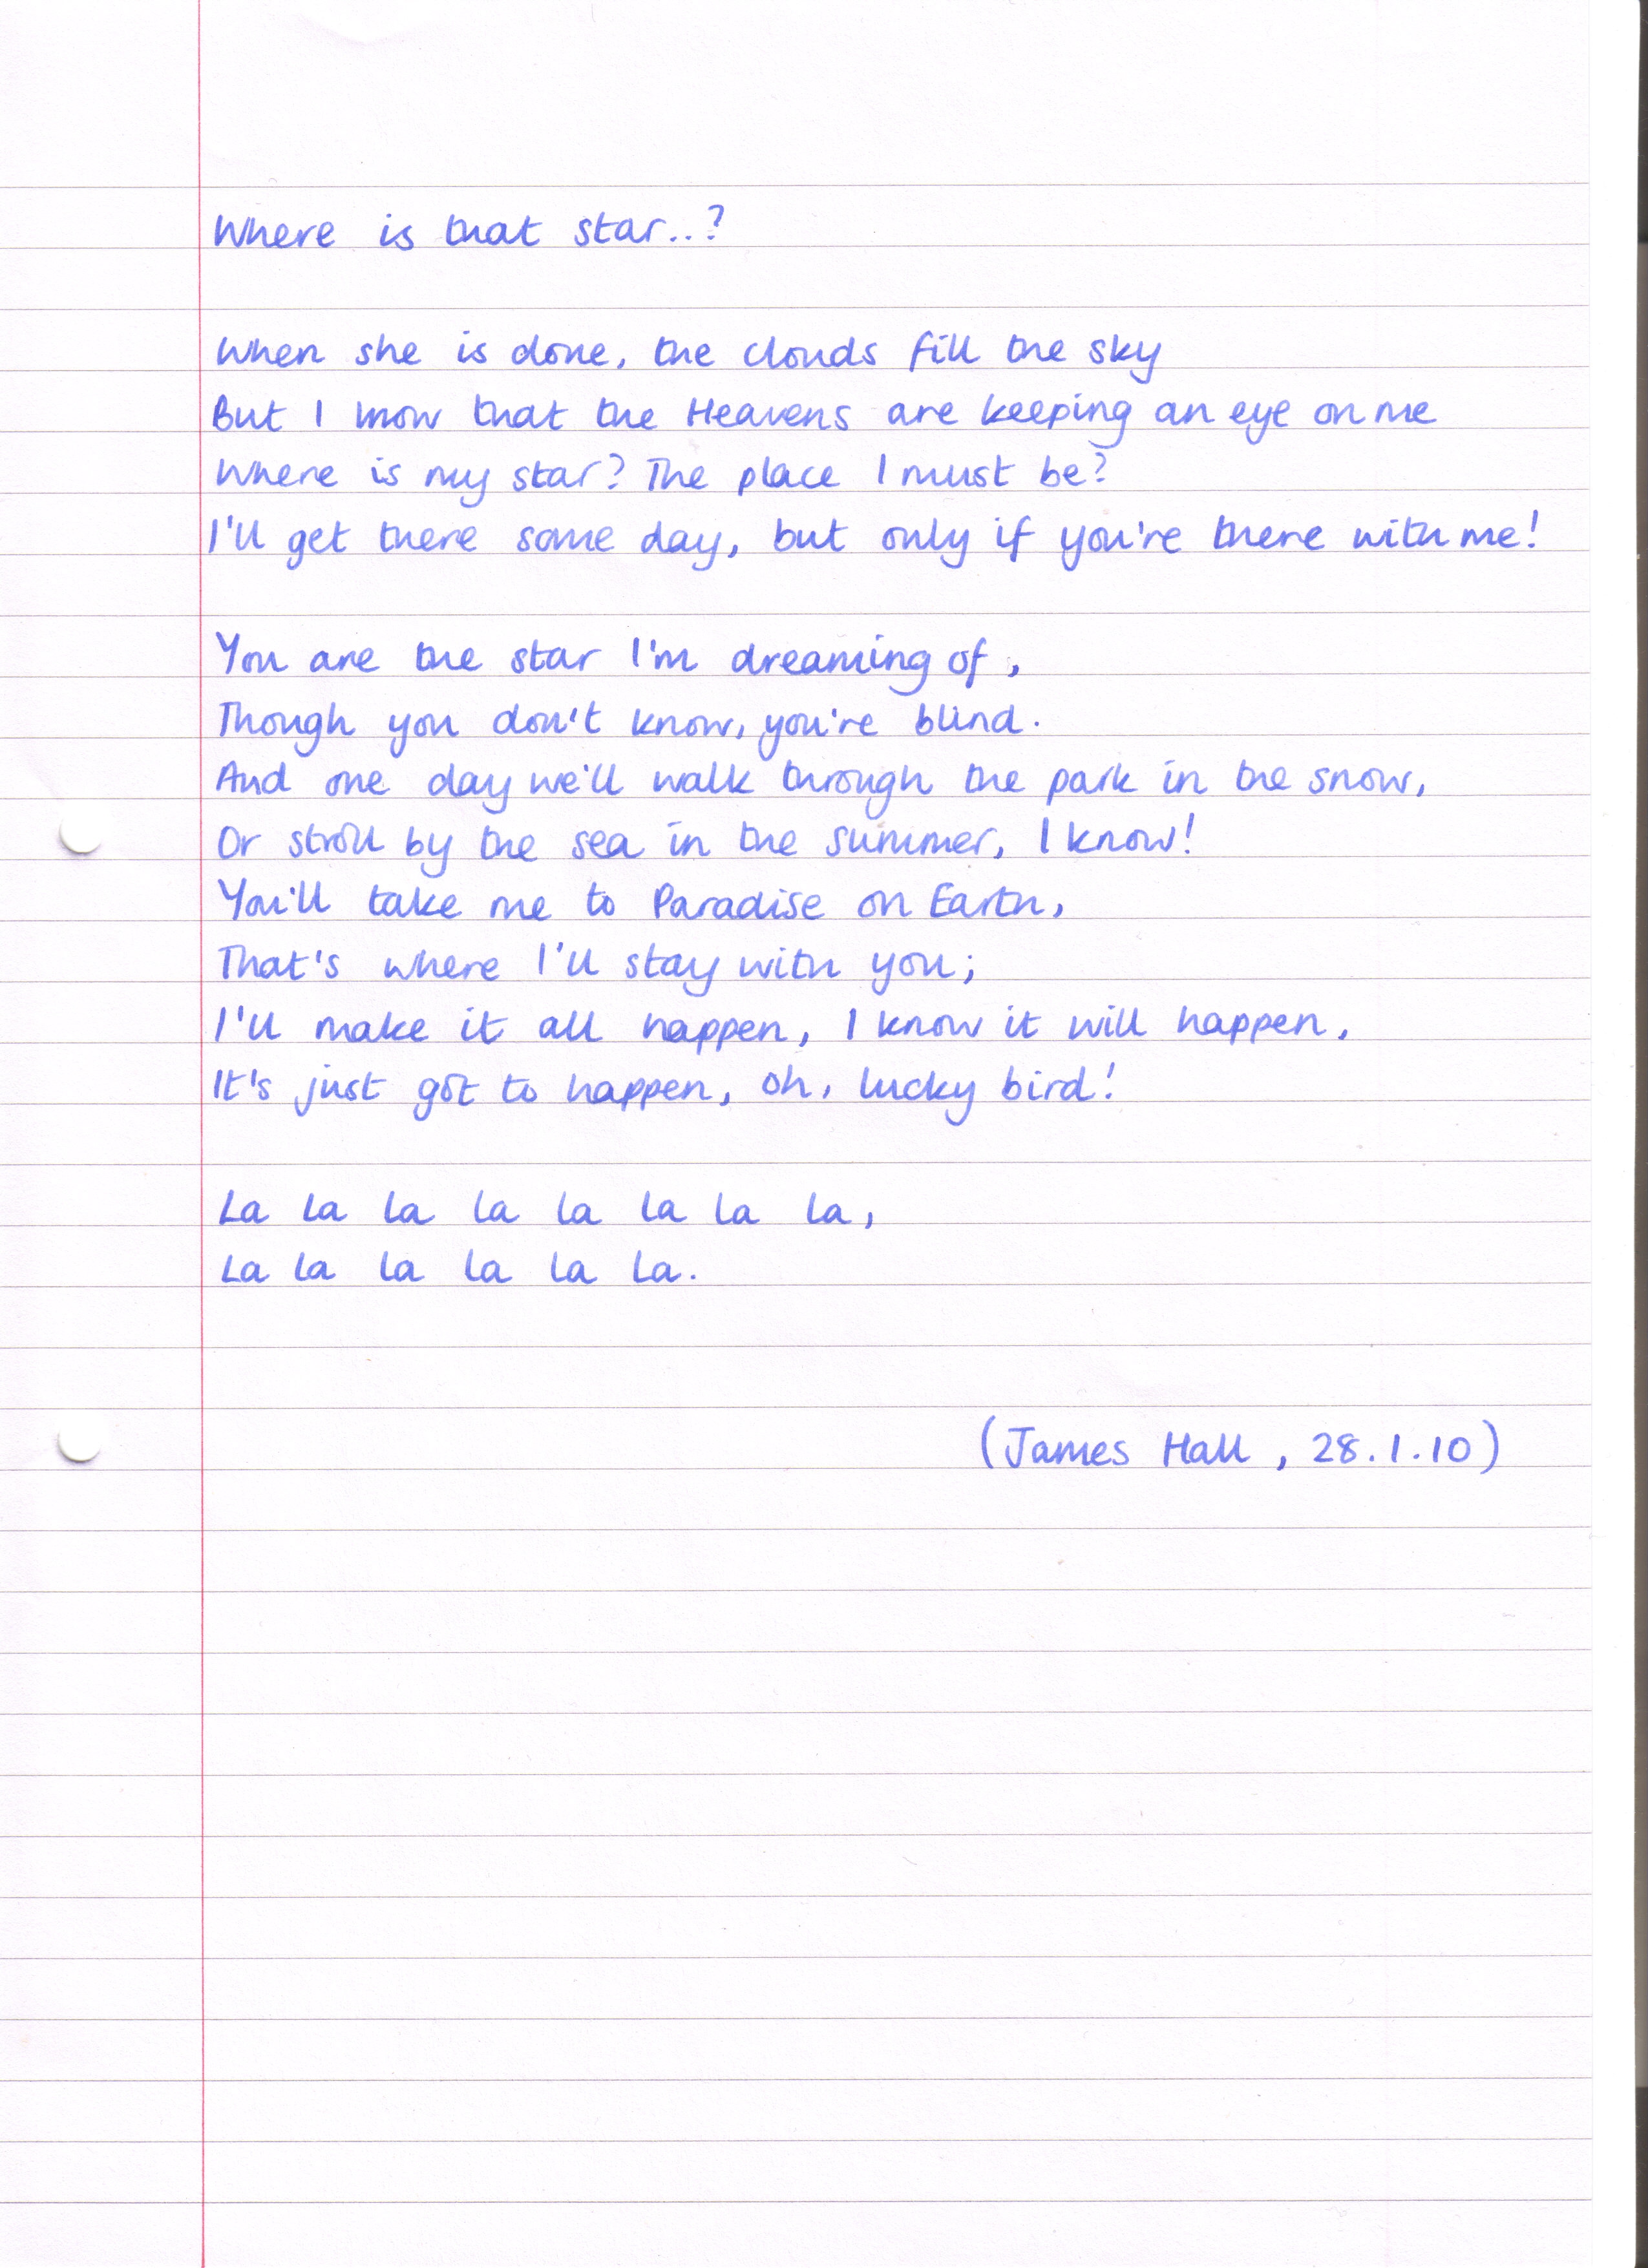 Where is that star..?
When she is done, the clouds fill the sky
But I know that the Heavens are keeping an eye on me
Where is my star? The place I must be?
I'll get there some day, but only if you're there with me!
You are the star I'm dreaming of,
Though you don't know, you're blind.
And one day we'll walk through the park in the snow,
Or stroll by the sea in the summer, I know!
You'll take me to Paradise on Earth,
That's where I'll stay with you;
I'll make it all happen, I know it will happen,
It's just got to happen, oh, lucky bird!
La la la la la la la la,
La la la la la la.
(James Hall, 28.1.10)